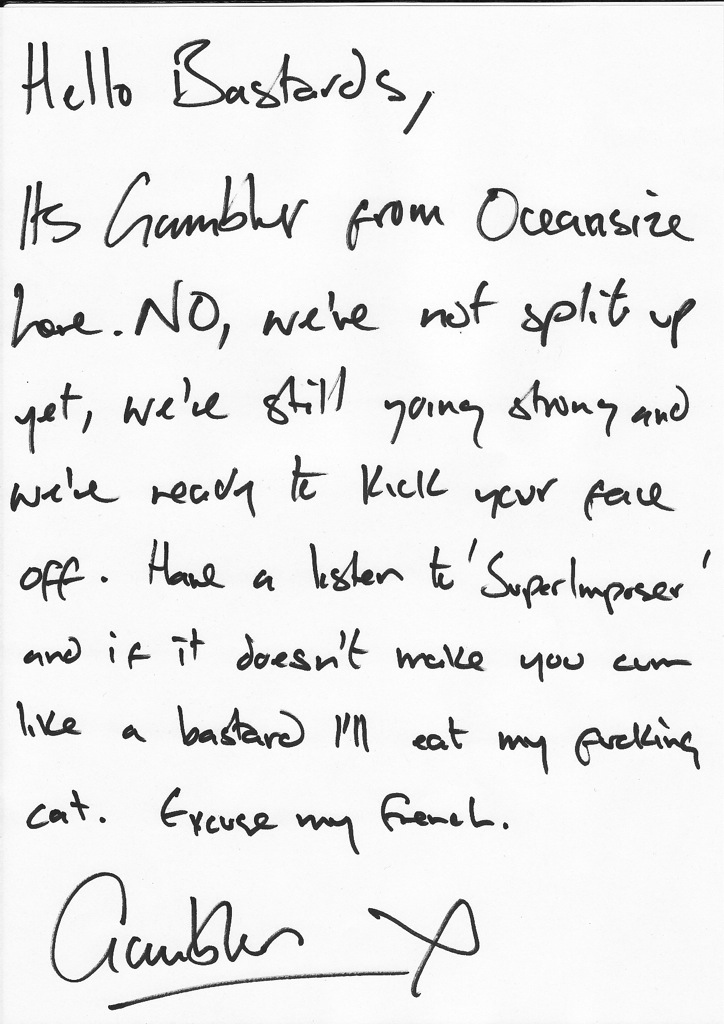 Hello Bastards,
Its Gambler from Oceansize
here. NO, we're not split up
yet, we're still going strong and
we're ready to kick your face
off. Have a listen to 'SuperImposer'
and if it doesn't make you cum
like a bastard I'll eat my fucking
cat. Excuse my french.
Gambler X